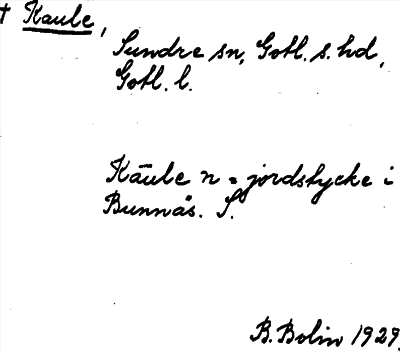 † Kaule,
Sundre sn, Gotl. s. hd,
Gotl. l.
Käule n = jordstycke i
Bunnäs. S.
B. Bolin 1929.